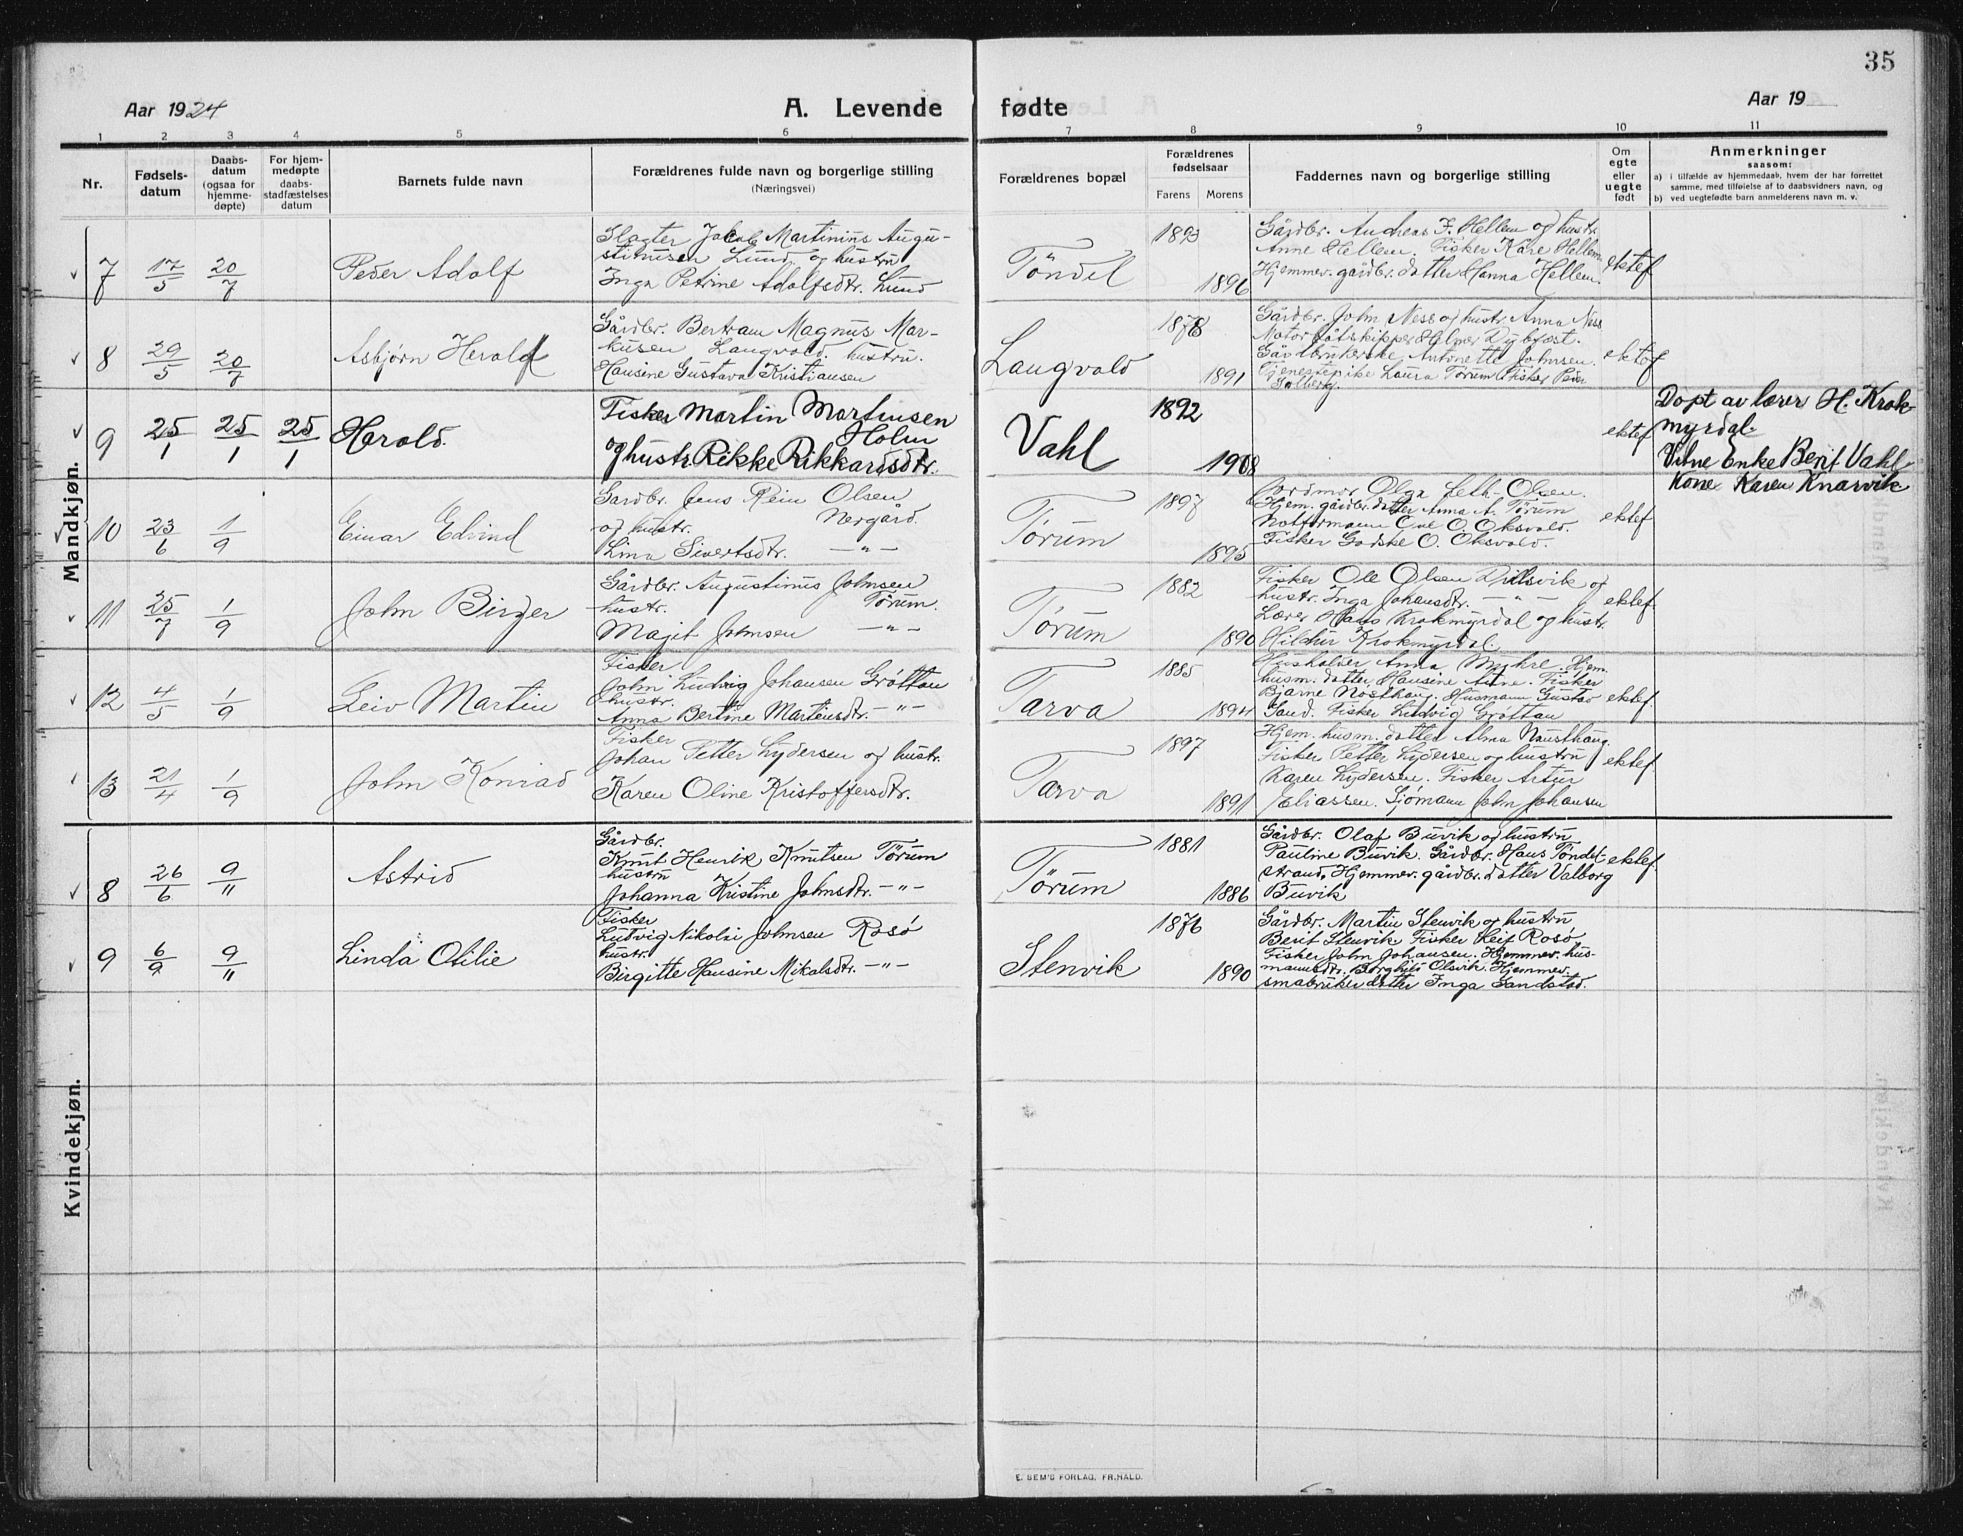 35
Aar 1924
A. Levende fødte
Aar 19
1 2 3 4 5 6 7 8 9 10 11
Nr.
Fødsels-
datum
Daabs-
datum
(ogsaa for
hjemme-
døpte)
For hjem-
medøpte
daabs-
stadfæstelses
datum
Barnets fulde navn
Forældrenes fulde navn og borgerlige stilling
(Næringsvei)
Forældrenes bopæl
Forældrenes
fødselsaar
Farens Morens
Faddernes navn og borgerlige stilling
Om
egte
eller
uegte
født
Anmerkninger
saasom:
a) i tilfælde av hjemmedaab, hvem der har forrettet
samme, med tilføielse af to daabsvidners navn, og
b) ved uegtefødte barn anmelderens navn m. v.
Mandkjøn.
v 7 17/5 20/7 Peder Adolf
Slagter Jakob Martinius Augu-
stinusen Lund og hustru
Inga Petrine Adolfsdtr. Lund
Töndel
1893
1896
Gårdbr. Andreas F. Hellem og hustr.
Anne Hellem. Fisker Kåre Hellem
Hjemmev. gårdbr. datter Hanna Hellem.
ektef
v 8 29/5 20/7 Asbjørn Herald
Gårdbr. Bertram Magnus Mar-
kusen Langvold. hustru.
Hansine Gustava Kristiansen
Langvold
1878
1891
Gårdbr. John Ness og hustr. Anna Ness
Motorbåtskipper Hilmer Dybfest.
Gårdbrukerske Antonette Johnsen.
Tjenestepike Laura Tørum Fisker Peder
Solberg.
ektef
v 9 25/1 25/1 25/1 Harald
Fisker Martin Martinsen
Holm
og hustr. Rikke Rikkardsdtr.
Vahl
1892
1908
ektef
Døpt av lærer H. Krok-
myrdal.
Vitne Enke Berit Vahl
Kone Karen Knarvik
v 10 23/6 1/9 Einar Edvind
Gardbr. Jens Rein Olsen
og hustr. Nergård.
Lina Sivertsdtr. —"—
Tørum
1897
1895
Jordmor Olga Leth-Olsen.
Hjem. gårdbr. datter Anna A. Tørum
Notformann Ole O. Oksvold.
Fisker Godske O. Oksvold.
ektef
v 11 25/7 1/9 John Birger
Gårdbr. Augustinus Johnsen
hustr. Tørum.
Magit Johnsen —"—
Tørum
1882
1890
Fisker Ole Olsen Dillsvik og
hustr. Inga Johansdtr. —"—
Lærer Hans Krokmyrdal og hustr.
Hildur Krokmyrdal.
ektef.
v 12 4/5 1/9 Leiv Martin
Fisker
John Ludvig Johansen Gröttan
hustr.
Anna Bertine Martensdtr. —"—
Tarva
1885
1894
Husholder Anna Myhre. Hjem.
husm. datter Hansine Aune. Fisker
Bjarne Nosthaug. Husmann Gustav
Sand. Fisker Ludvig Gröttan
ektef.
v 13 21/4 1/9 John Konrad
Fisker
Johan Petter Lydersen og hustr.
Karen Oline Kristoffersdtr.
Tarva
1897
1891
Hjem. husm. datter Alma Nausthaug.
Fisker Petter Lydersen og hustru
Karen Lydersen. Fisker Artur
Eliassen. Sjømann John Johansen
ektef.
Kvindekjøn.
v 8 26/6 9/11 Astrid
Gårdbr.
Knut Henrik Knutsen Tørum
hustru
Johanna Kristine Johnsdtr. —"—
Tørum
1881
1886
Gårdbr. Olaf Buvik og hustru
Pauline Buvik. Gårdbr. Hans Töndel-
strand. Hjemmev. gårdbr. datter Valborg
Buvik
ektef.
v 9 6/9 9/11 Linda Otilie
Fisker
Ludvig Nikolai Johnsen Rosö
hustr.
Birgitte Hansine Mikalsdtr. —"—
Stenvik
1876
1890
Gårdbr. Martin Stenvik og hustru
Berit Stenvik Fisker Leif Rosö
Fisker John Johansen. Hjemmev. hus-
mannsdtr. Borghild Olsvik. Hjemmev.
småbruker datter Inga Sandstad.
E. SEM'S FORLAG, FR.HALD.